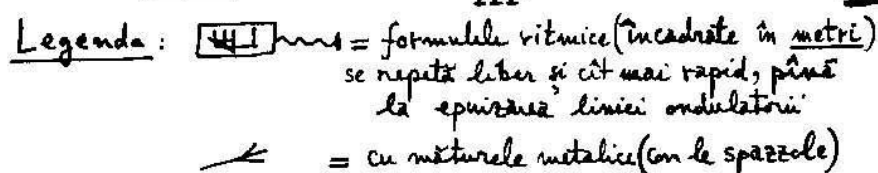 III
Legenda: = formulele ritmice (încadrate în metri)
se repetă liber și cît mai rapid, pînă
la epuizarea liniei ondulatorii
= cu măturele metalice (con le spazzole)